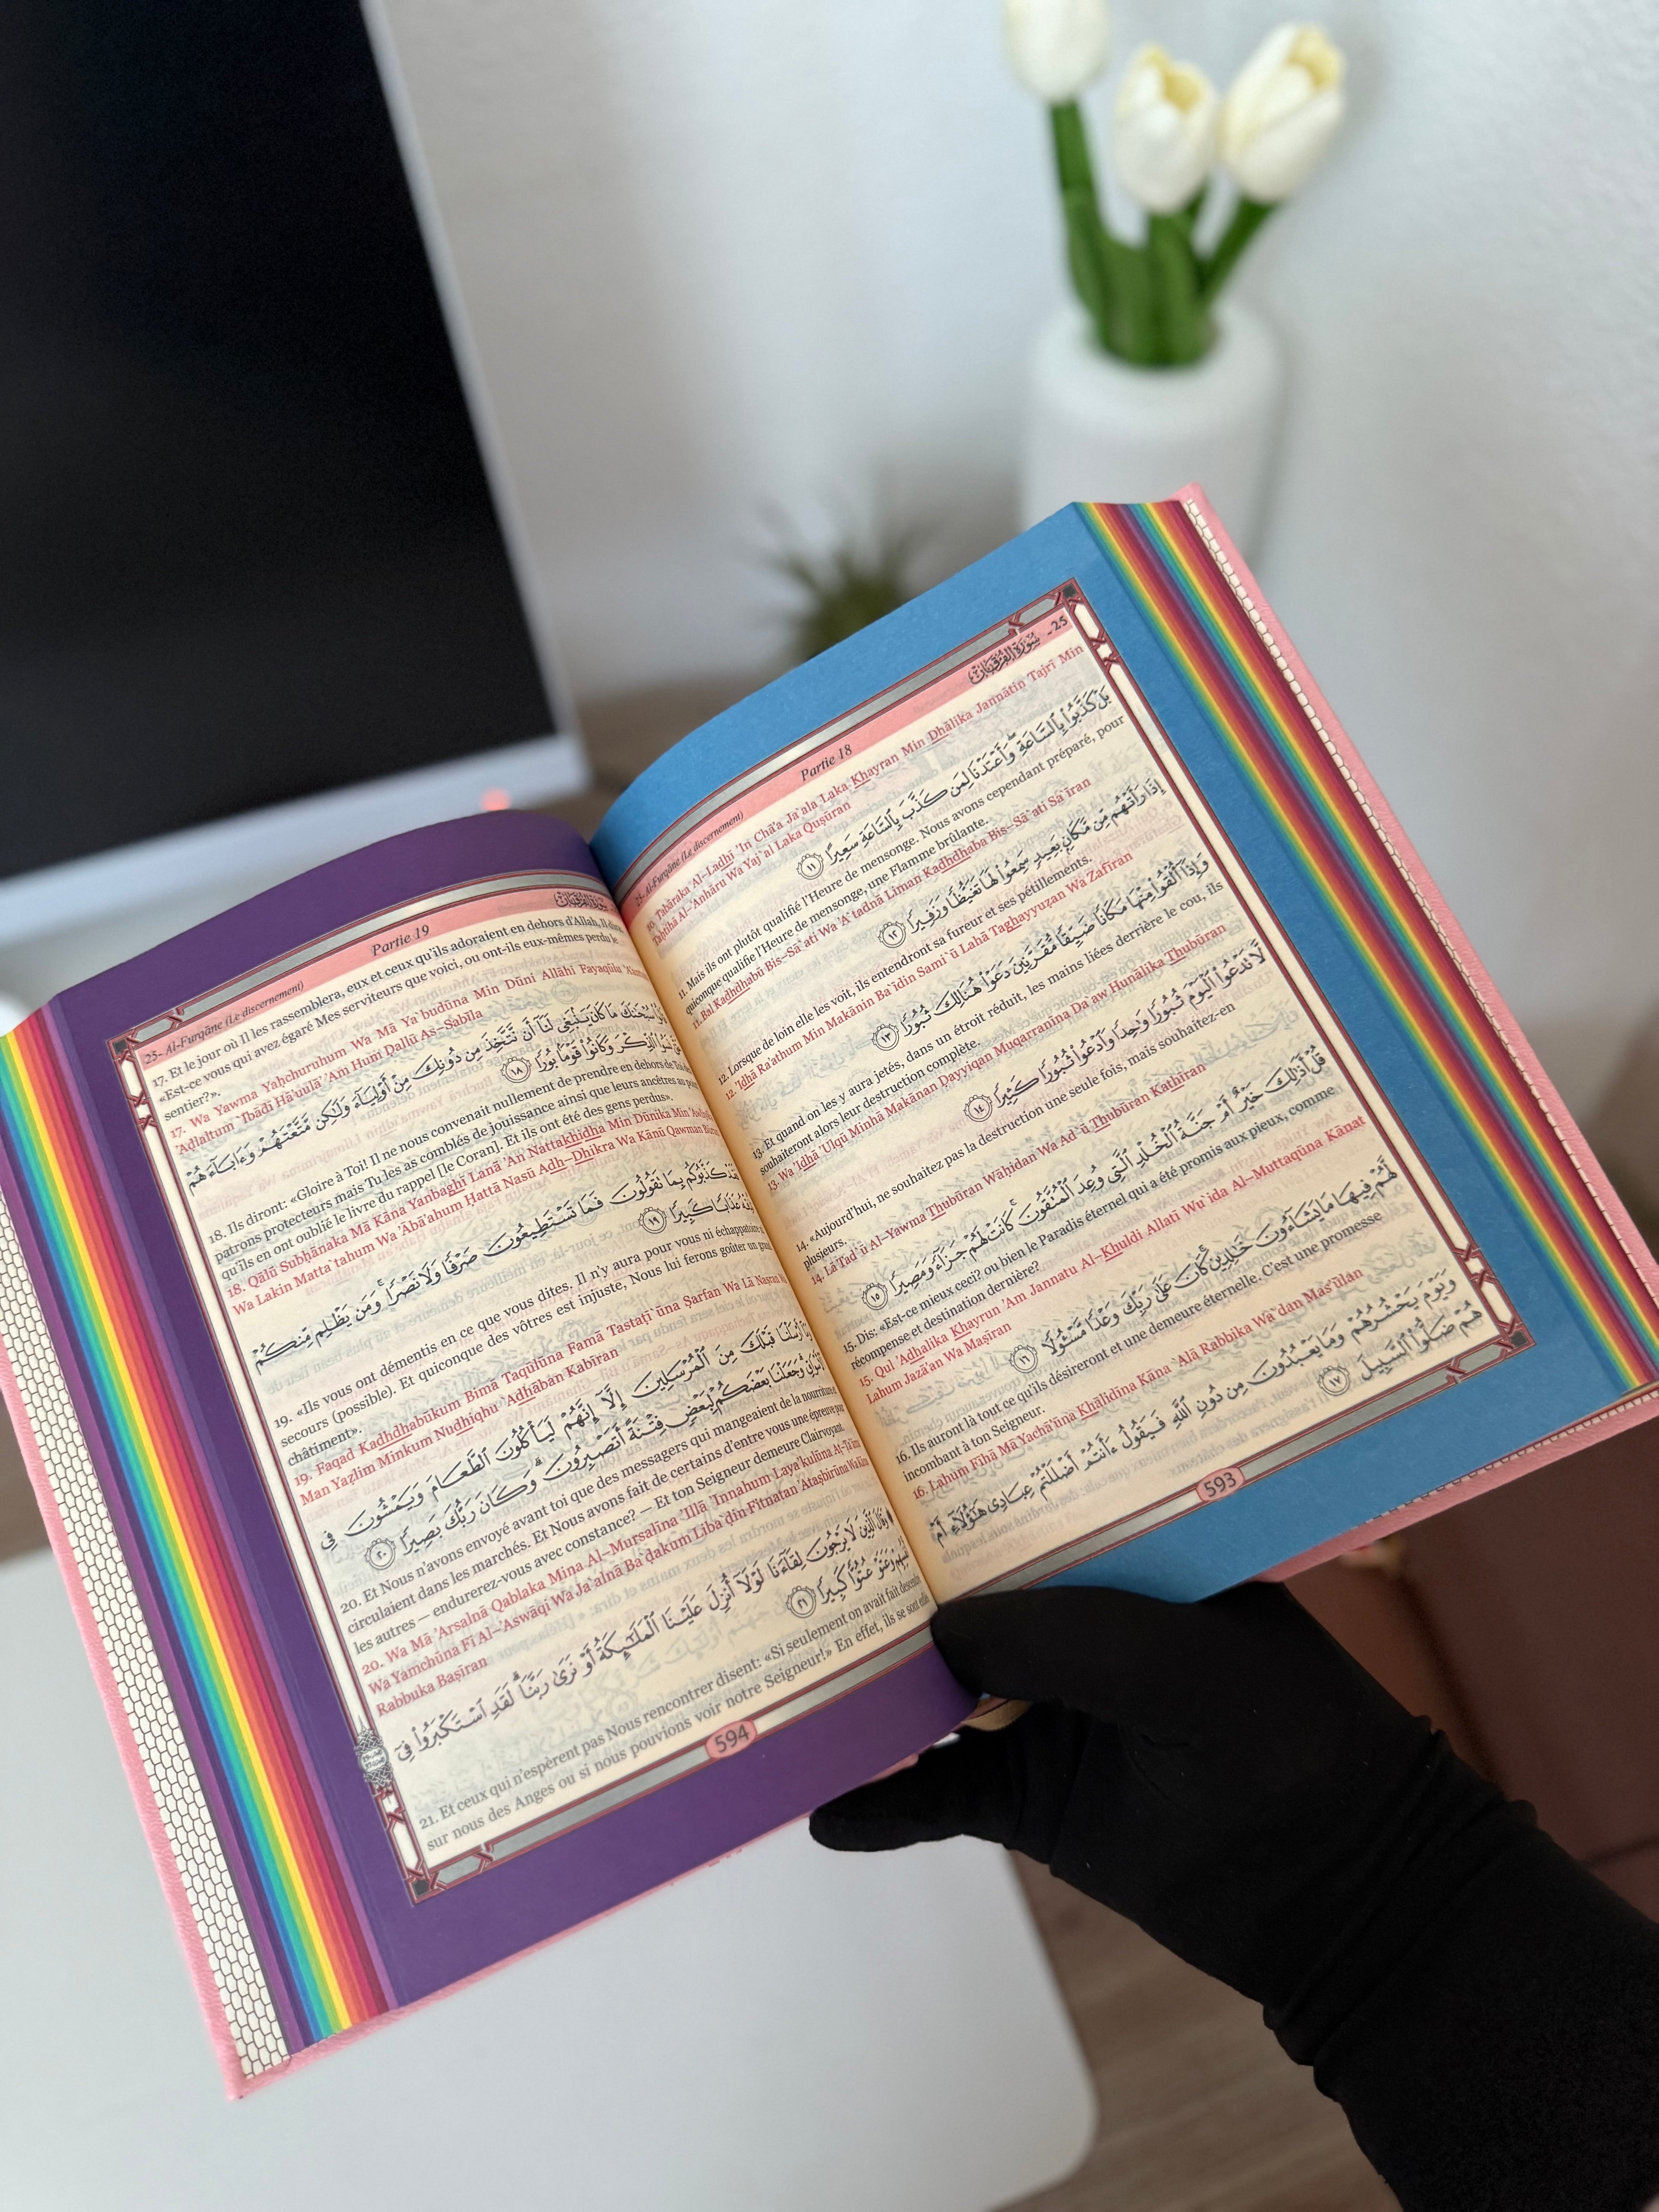 25- Al-Furqâne (Le discernement) Partie 18 سُورَةُ الفُرْقَانِ -25
10. Tabāraka Al-Ladhī 'In Chā'a Ja`ala Laka Khayran Min Dhālika Jannātin Tajrī Min
Taĥtihā Al-Anhāru Wa Yaj`al Laka Quşūran
بَلْ كَذَّبُوا۟ بِٱلسَّاعَةِ ۖ وَأَعْتَدْنَا لِمَن كَذَّبَ بِٱلسَّاعَةِ سَعِيرًا ١١
11. Mais ils ont plutôt qualifié l'Heure de mensonge. Nous avons cependant préparé, pour
quiconque qualifie l'Heure de mensonge, une Flamme brûlante.
11. Bal Kadhdhabū Bis-Sā`ati Wa 'A`tadnā Liman Kadhdhaba Bis-Sā`ati Sa`īran
إِذَا رَأَتْهُم مِّن مَّكَانٍۭ بَعِيدٍ سَمِعُوا۟ لَهَا تَغَيُّظًا وَزَفِيرًا ١٢
12. Lorsque de loin elle les voit, ils entendront sa fureur et ses pétillements.
12. 'Idhā Ra'athum Min Makānin Ba`īdin Sami`ū Lahā Taghayyuzan Wa Zafīran
وَإِذَآ أُلْقُوا۟ مِنْهَا مَكَانًا ضَيِّقًا مُّقَرَّنِينَ دَعَوْا۟ هُنَالِكَ ثُبُورًا ١٣
13. Et quand on les y aura jetés, dans un étroit réduit, les mains liées derrière le cou, ils
souhaiteront alors leur destruction complète.
13. Wa 'Idhā 'Ulqū Minhā Makānan Đayyiqan Muqarranīna Da`aw Hunālika Thubūran
لَّا تَدْعُوا۟ ٱلْيَوْمَ ثُبُورًا وَٰحِدًا وَٱدْعُوا۟ ثُبُورًا كَثِيرًا ١٤
14. «Aujourd'hui, ne souhaitez pas la destruction une seule fois, mais souhaitez-en
plusieurs.
14. Lā Tad`ū Al-Yawma Thubūran Wāĥidan Wa Ad`ū Thubūran Kathīran
قُلْ أَذَٰلِكَ خَيْرٌ أَمْ جَنَّةُ ٱلْخُلْدِ ٱلَّتِى وُعِدَ ٱلْمُتَّقُونَ ۚ كَانَتْ لَهُمْ جَزَآءً وَمَصِيرًا ١٥
15. Dis: «Est-ce mieux ceci? ou bien le Paradis éternel qui a été promis aux pieux, comme
récompense et destination dernière?
15. Qul 'Adhalika Khayrun 'Am Jannatu Al-Khuldi Allatī Wu`ida Al-Muttaqūna Kānat
Lahum Jazā'an Wa Maşīran
لَّهُمْ فِيهَا مَا يَشَآءُونَ خَٰلِدِينَ ۚ كَانَ عَلَىٰ رَبِّكَ وَعْدًا مَّسْـُٔولًا ١٦
16. Ils auront là tout ce qu'ils désireront et une demeure éternelle. C'est une promesse
incombant à ton Seigneur.
16. Lahum Fīhā Mā Yachā'ūna Khālidīna Kāna `Alá Rabbika Wa`dan Mas'ūlan
وَيَوْمَ يَحْشُرُهُمْ وَمَا يَعْبُدُونَ مِن دُونِ ٱللَّهِ فَيَقُولُ ءَأَنتُمْ أَضْلَلْتُمْ عِبَادِى هَٰٓؤُلَآءِ أَمْ
هُمْ ضَلُّوا۟ ٱلسَّبِيلَ ١٧
593
25- Al-Furqâne (Le discernement) Partie 19 سُورَةُ الفُرْقَانِ
17. Et le jour où Il les rassemblera, eux et ceux qu'ils adoraient en dehors d'Allah, Il dira:
«Est-ce vous qui avez égaré Mes serviteurs que voici, ou ont-ils eux-mêmes perdu le
sentier?».
17. Wa Yawma Yaĥchuruhum Wa Mā Ya`budūna Min Dūni Allāhi Fayaqūlu 'A'antum
'Ađlaltum `Ibādī Hā'uulā' 'Am Hum Đallū As-Sabīla
قَالُوا۟ سُبْحَٰنَكَ مَا كَانَ يَنۢبَغِى لَنَآ أَن نَّتَّخِذَ مِن دُونِكَ مِنْ أَوْلِيَآءَ وَلَٰكِن مَّتَّعْتَهُمْ وَءَابَآءَهُمْ
حَتَّىٰ نَسُوا۟ ٱلذِّكْرَ وَكَانُوا۟ قَوْمًۢا بُورًا ١٨
18. Ils diront: «Gloire à Toi! Il ne nous convenait nullement de prendre en dehors de Toi des
patrons protecteurs mais Tu les as comblés de jouissance ainsi que leurs ancêtres au point
qu'ils en ont oublié le livre du rappel [le Coran]. Et ils ont été des gens perdus».
18. Qālū Subĥānaka Mā Kāna Yanbaghī Lanā 'An Nattakhidha Min Dūnika Min 'Awliyā'
Wa Lakin Matta`tahum Wa 'Ābā'ahum Ĥattá Nasū Adh-Dhikra Wa Kānū Qawman Būrān
فَقَدْ كَذَّبُوكُم بِمَا تَقُولُونَ فَمَا تَسْتَطِيعُونَ صَرْفًا وَلَا نَصْرًا ۚ وَمَن يَظْلِم مِّنكُمْ
نُذِقْهُ عَذَابًا كَبِيرًا ١٩
19. «Ils vous ont démentis en ce que vous dites. Il n'y aura pour vous ni échappatoire ni
secours (possible). Et quiconque des vôtres est injuste, Nous lui ferons goûter un grand
châtiment».
19. Faqad Kadhdhabūkum Bimā Taqūlūna Famā Tastaţī`ūna Şarfan Wa Lā Naşra Wa
Man Yažlim Minkum Nudhiqhu `Adhābān Kabīran
وَمَآ أَرْسَلْنَا قَبْلَكَ مِنَ ٱلْمُرْسَلِينَ إِلَّآ إِنَّهُمْ لَيَأْكُلُونَ ٱلطَّعَامَ وَيَمْشُونَ فِى
ٱلْأَسْوَاقِ ۗ وَجَعَلْنَا بَعْضَكُمْ لِبَعْضٍ فِتْنَةً أَتَصْبِرُونَ ۗ وَكَانَ رَبُّكَ بَصِيرًا ٢٠
20. Et Nous n'avons envoyé avant toi que des messagers qui mangeaient de la nourriture et
circulaient dans les marchés. Et Nous avons fait de certains d'entre vous une épreuve pour
les autres — endurerez-vous avec constance? — Et ton Seigneur demeure Clairvoyant.
20. Wa Mā 'Arsalnā Qablaka Mina Al-Mursalīna 'Illā 'Innahum Laya'kulūna Aţ-Ţa`āma
Wa Yamchūna Fī Al-'Aswāqi Wa Ja`alnā Ba`đakum Liba`đin Fitnatan 'Ataşbirūna Wa Kāna
Rabbuka Başīran
وَقَالَ ٱلَّذِينَ لَا يَرْجُونَ لِقَآءَنَا لَوْلَآ أُنزِلَ عَلَيْنَا ٱلْمَلَٰٓئِكَةُ أَوْ نَرَىٰ رَبَّنَا ۗ لَقَدِ ٱسْتَكْبَرُوا۟ فِىٓ
أَنفُسِهِمْ وَعَتَوْ عُتُوًّا كَبِيرًا ٢١
21. Et ceux qui n'espèrent pas Nous rencontrer disent: «Si seulement on avait fait descendre
sur nous des Anges ou si nous pouvions voir notre Seigneur!» En effet, ils se sont enflés
594